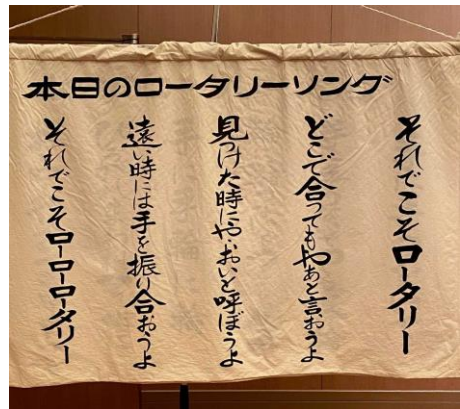 本日のロータリーソング
それでこそロータリー
どこで合ってもやあと言おうよ
見つけた時にやおいを呼ぼうよ
遠い時には手を振り合おうよ
それでこそローローロータリー